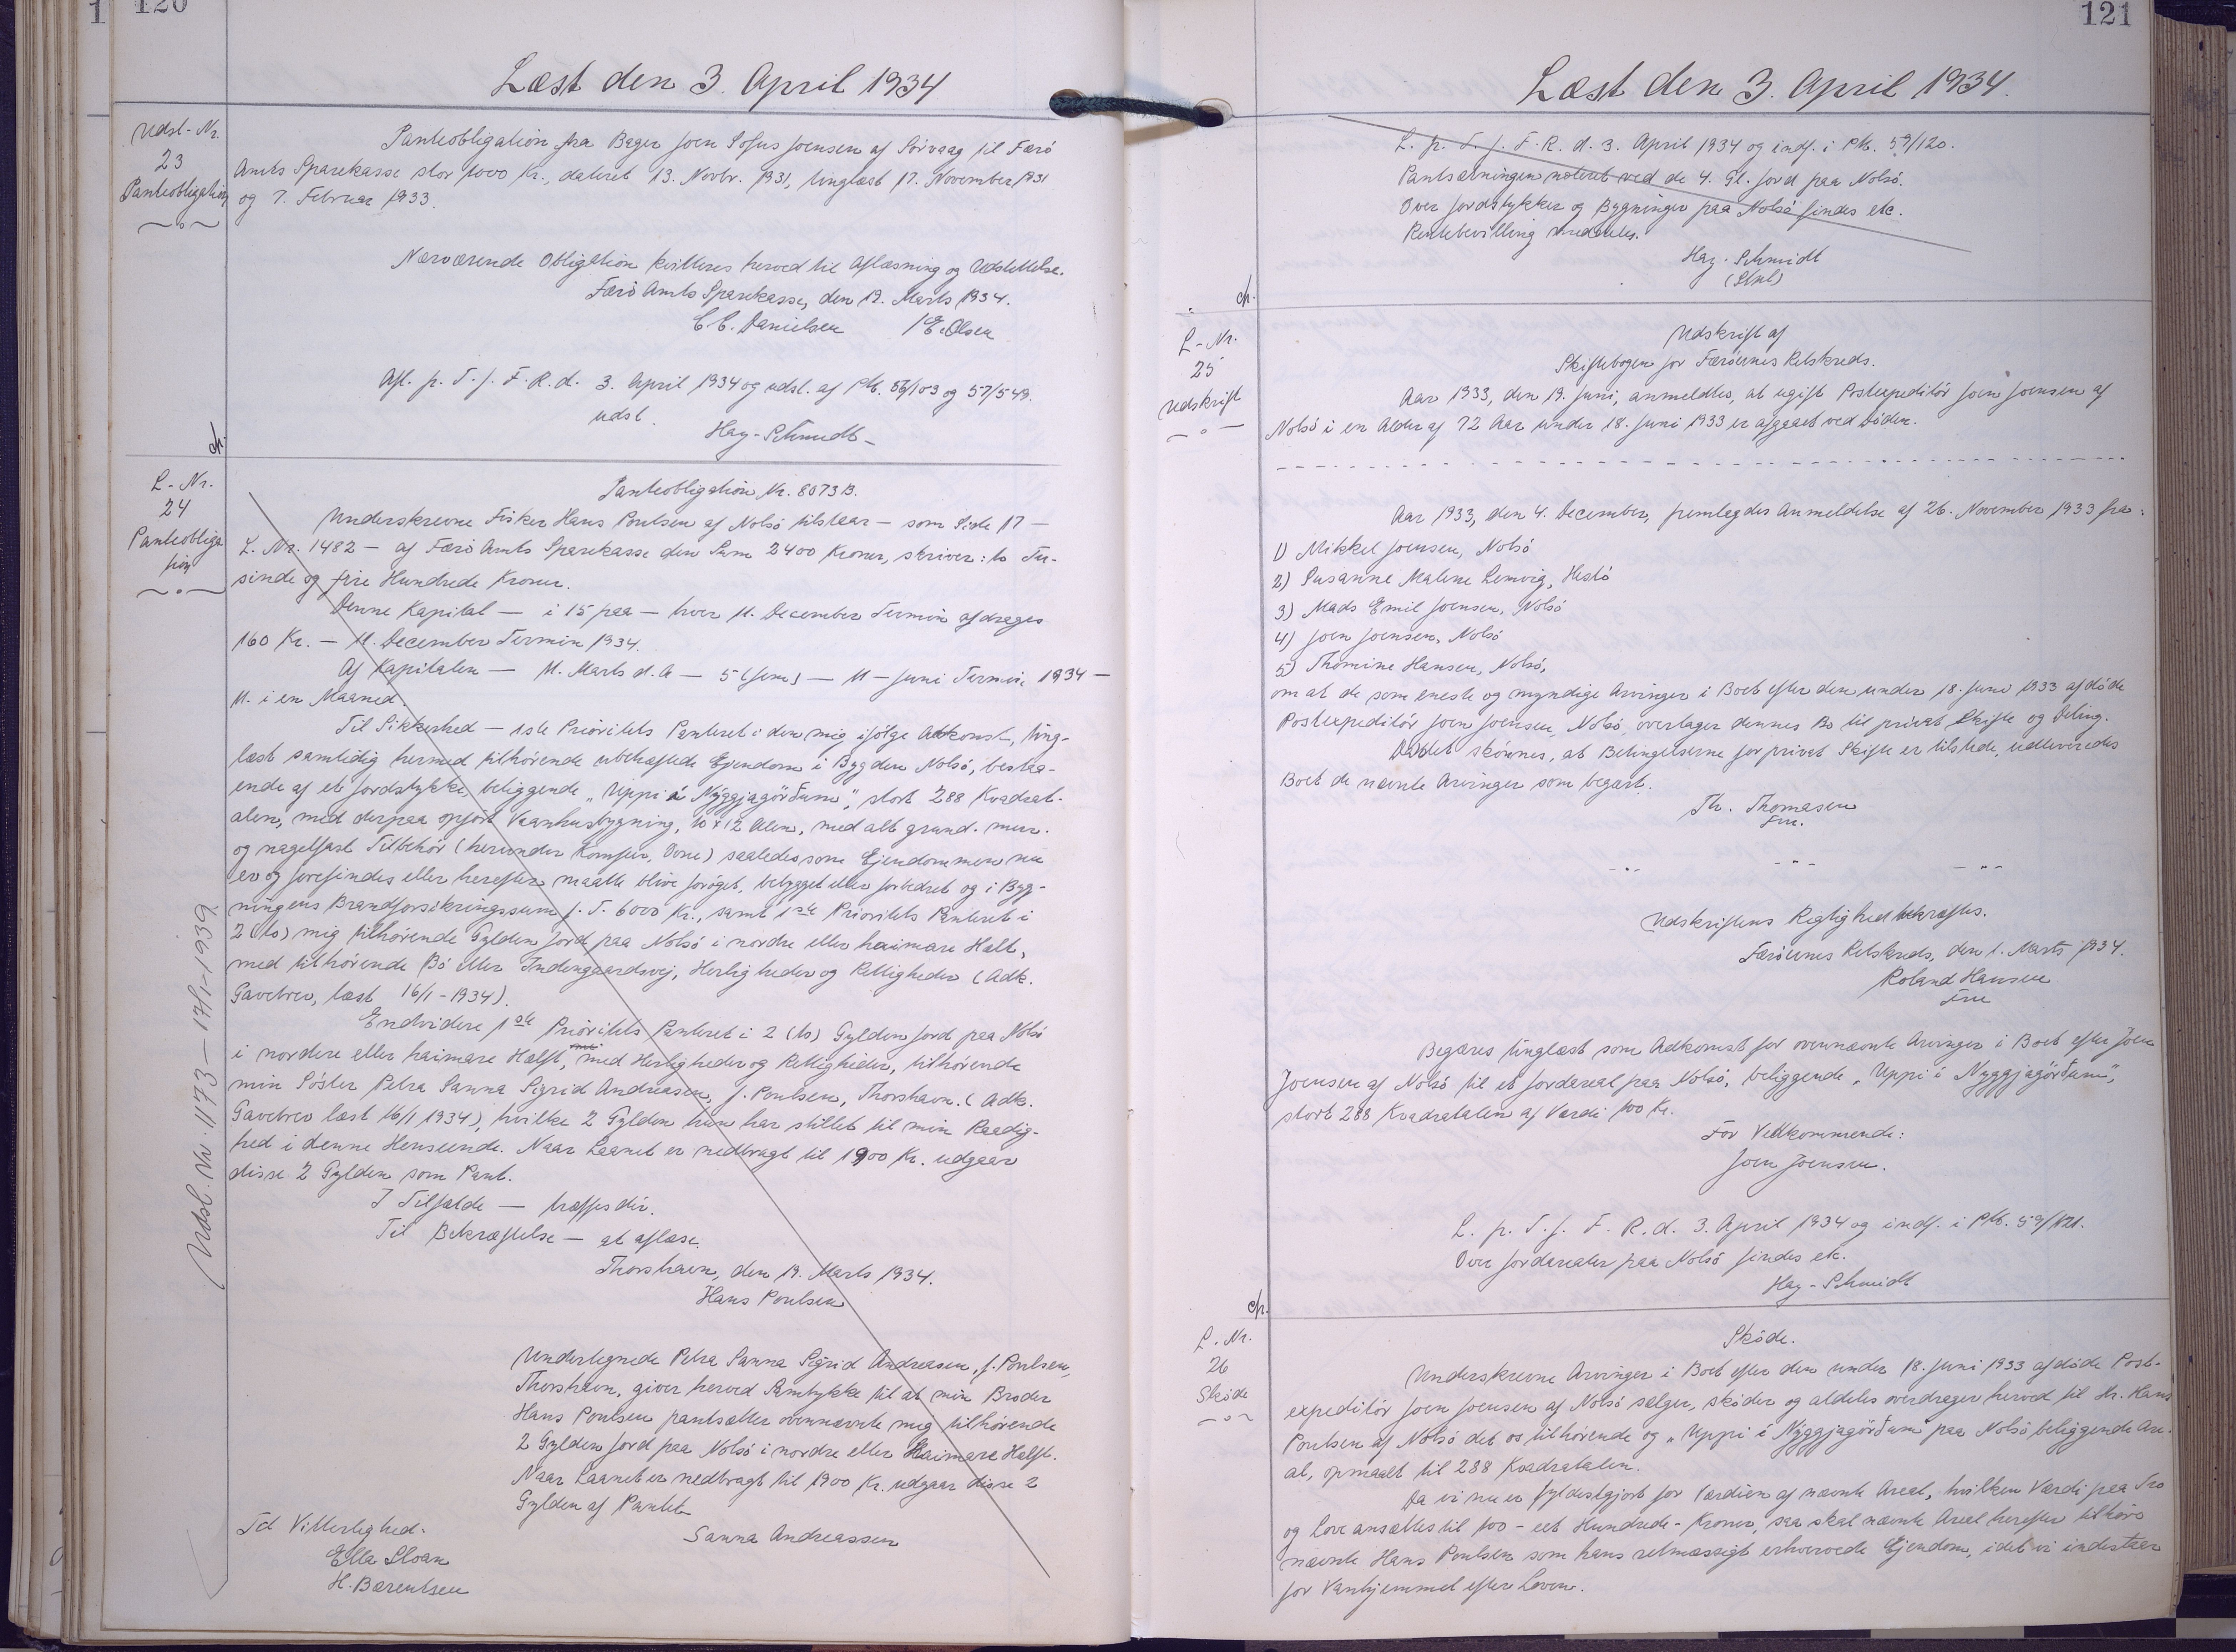 120
Læst den 3. April 1934
Udsl-Nr.
23
Panteobligation
Panteobligation fra Bager Joen Sofus Joensen af Sörvaag til Færö
Amts Sparekasse stor 1000 Kr., dateret 13. Novbr. 1931, tinglæst 17. November 1931
og 7. Februar 1933.
Nærværende Obligation kvitteres herved til Aflæsning og Udslettelse.
Færö Amts Sparekasse, den 19. Marts 1934.
C.C. Danielsen / E. Olsen
Afl. p. T. f. F. R. d. 3. April 1934 og udsl. af Ptb. 56/103 og 57/549.
udsl.
Hay-Schmidt
L-Nr.
24
Panteobliga
tion
Panteobligation Nr. 8073 B.
Underskrevne Fisker Hans Poulsen af Nolsö tilstaar — som Side 17 —
L. Nr. 1482 — af Færö Amts Sparekasse den Sum 2400 Kroner, skriver: to Tu-
sinde og fire Hundrede Kroner.
Denne Kapital — i 15 paa — hver 11. December Termin afdrages
160 Kr. — 11. December Termin 1934.
Af Kapitalen — 11. Marts d. A — 5 (fem) — 11 — Juni Termin 1934 —
11. i en Maaned.
Til Sikkerhed — 1ste Prioritets Panteret i den mig ifölge Adkomst, ting-
læst samtidig hermed tilhörende ubehæftede Ejendom i Bygden Nolsö, bestaa-
ende af et Jordstykke, beliggende "Uppi á Nýggjagörðum", stort 288 Kvadrat-
alen, med derpaa opfört Vaanhusbygning, 10 x 12 Alen, med alt grund- mur-
og nagelfast Tilbehör (herunder Komfur, Ovne) saaledes som Ejendommen nu
er og forefindes eller herefter maatte blive foröget, bebygget eller forbedret og i Byg-
ningens Brandforsikringssum p. T. 6000 Kr., samt 1ste Prioritets Panteret i
2 (to) mig tilhörende Gylden Jord paa Nolsö i nordre eller haimare Halt,
med tilhörende Bö eller Indengaardsvej, Herligheder og Rettigheder (Adk.
Gavebrev, læst 16/1 - 1934).
Endvidere 1ste Prioritets Panteret i 2 (to) Gylden Jord paa Nolsö
i nordere eller haimare Hælft, med Herligheder og Rettigheder, tilhörende
min Söster Petra Sanna Sigrid Andreasen, f. Poulsen, Thorshavn. (Adk.
Gavebrev læst 16/1 1934), hvilke 2 Gylden hun har stillet til min Raadig-
hed i denne Henseende. Naar Laanet er nedbragt til 1900 Kr. udgaar
disse 2 Gylden som Pant.
I Tilfælde — træffes dér.
Til Bekræftelse — at aflæse.
Thorshavn, den 19. Marts 1934.
Hans Poulsen
Undertegnede Petra Sanna Sigrid Andreasen, f. Poulsen,
Thorshavn, giver herved Samtykke til at min Broder
Hans Poulsen pantsætter ovennævnte mig tilhörende
2 Gylden Jord paa Nolsö i nordre eller Haimare Halft.
Naar Laanet er nedbragt til 1900 Kr. udgaar disse 2
Gylden af Pantet
Sanna Andreassen
Til Vitterlighed:
Ella Sloan
H. Bærentsen
Udsl. Nr. 1173 — 17/1-1939
121
Læst den 3. April 1934.
L. p. T. f. F. R. d. 3. April 1934 og indf. i Ptb. 59/120.
Pantsætningen noteret ved de 4. Gl. Jord paa Nolsö.
Over Jordstykker og Bygninger paa Nolsö findes etc.
Rentebevilling meddeles.
Hay-Schmidt
L-Nr.
25
Udskrift
Udskrift af
Skiftebogen for Færöernes Retskreds.
Aar 1933, den 19. Juni, anmeldtes, at ugift Postexpeditör Joen Joensen af
Nolsö i en Alder af 72 Aar under 18. Juni 1933 er afgaaet ved Döden.
Aar 1933, den 4. December, fremlagdes Anmeldelse af 26. November 1933 fra:
1) Mikkel Joensen, Nolsö
2) Susanne Malene Lemvig, Hestö
3) Mads Emil Joensen, Nolsö
4) Joen Joensen, Nolsö
5) Thomine Hansen, Nolsö,
om at de som eneste og myndige Arvinger i Boet efter den under 18. Juni 1933 afdöde
Postexpeditör Joen Joensen, Nolsö, overtager dennes Bo til privat Skifte og Deling.
Da det skönnes, at Betingelserne for privat Skifte er tilstede, udleveredes
Boet de nævnte Arvinger som begært.
Th. Thomasen
Fm.
Udskriftens Rigtighed bekræftes.
Færöernes Retskreds, den 1. Marts 1934.
Roland Hansen
Fm
Begæres tinglæst som Adkomst for ovennævnte Arvinger i Boet efter Joen
Joensen af Nolsö til et Jordareal paa Nolsö, beliggende "Uppi i Nýggjagörðum",
stort 288 Kvadratalen af Værdi 100 Kr.
For Vedkommende:
Joen Joensen.
L. p. T. f. F. R. d. 3. April 1934 og indf. i Ptb. 59/121.
Over Jordarealer paa Nolsö findes etc.
Hay-Schmidt
L. Nr.
26
Sköde
Sköde.
Underskrevne Arvinger i Boet efter den under 18. Juni 1933 afdöde Post-
expeditör Joen Joensen af Nolsö sælger, sköder og aldeles overdrager herved til Hr. Hans
Poulsen af Nolsö det os tilhörende og "Uppi i Nýggjagörðum" paa Nolsö beliggende Are-
al, opmaalt til 288 Kvadratalen.
Da vi nu er fyldestgjort for Værdien af nævnte Areal, hvilken Værdi paa Tro
og Love ansættes til 100 - eet Hundrede - Kroner, saa skal nævnte Areal herefter tilhöre
nævnte Hans Poulsen som hans retmæssigt erhvervede Ejendom, idet vi indestaar
for Vanhjemmel efter Loven.